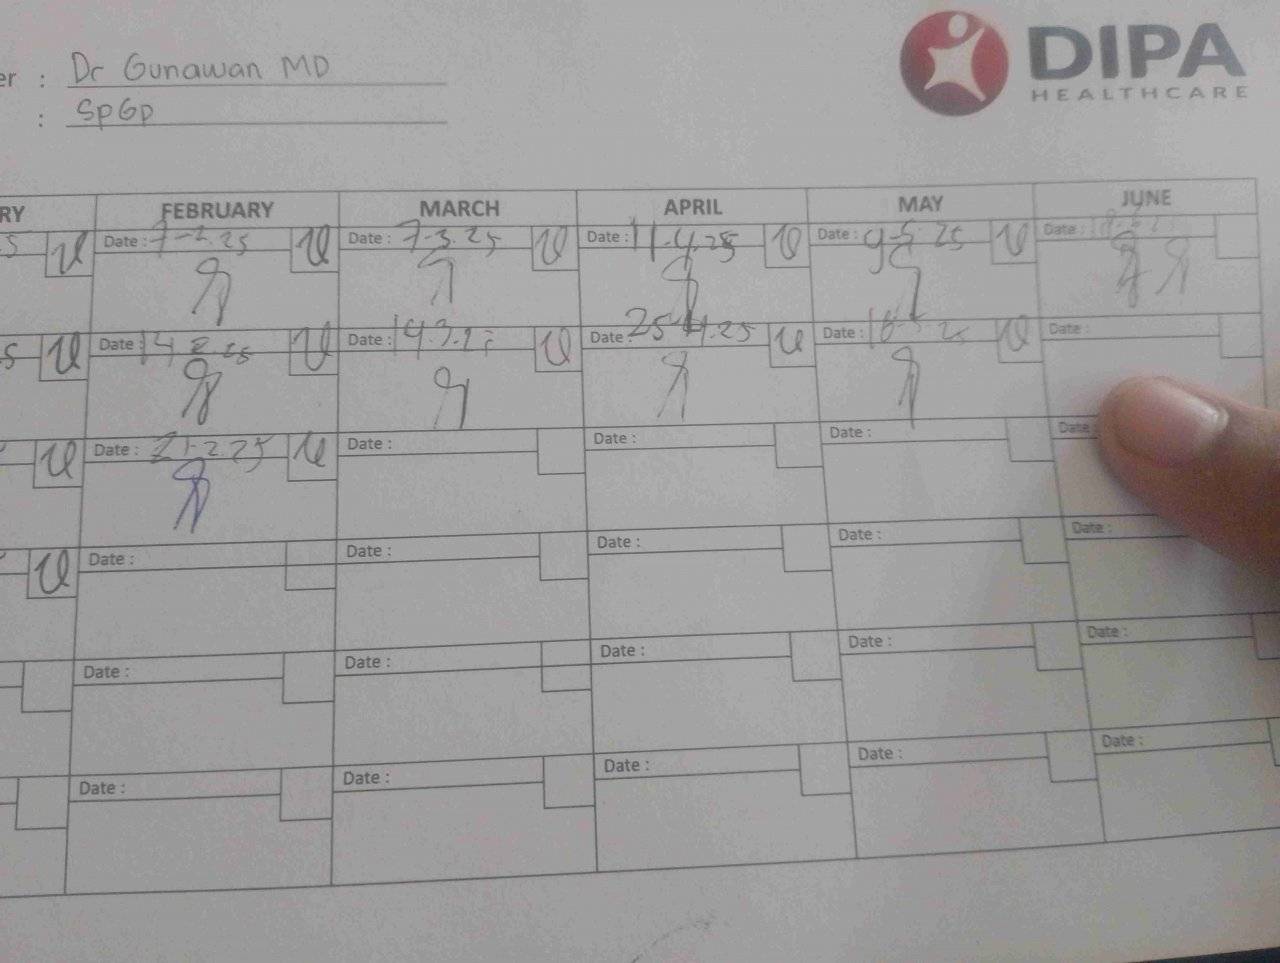 er : Dr Gunawan MD
: SpGp
DIPA
HEALTHCARE
RY FEBRUARY MARCH APRIL MAY JUNE
5 Date : 7-2.25 Date : 7-3.25 Date : 11.4.25 Date : 9-5.25 Date :
5 Date : 14.2.25 Date : 14.3.25 Date : 25.4.25 Date : Date :
Date : 21-2.25 Date : Date : Date : Date
Date : Date : Date : Date : Date :
Date : Date : Date : Date : Date :
Date : Date : Date : Date : Date :